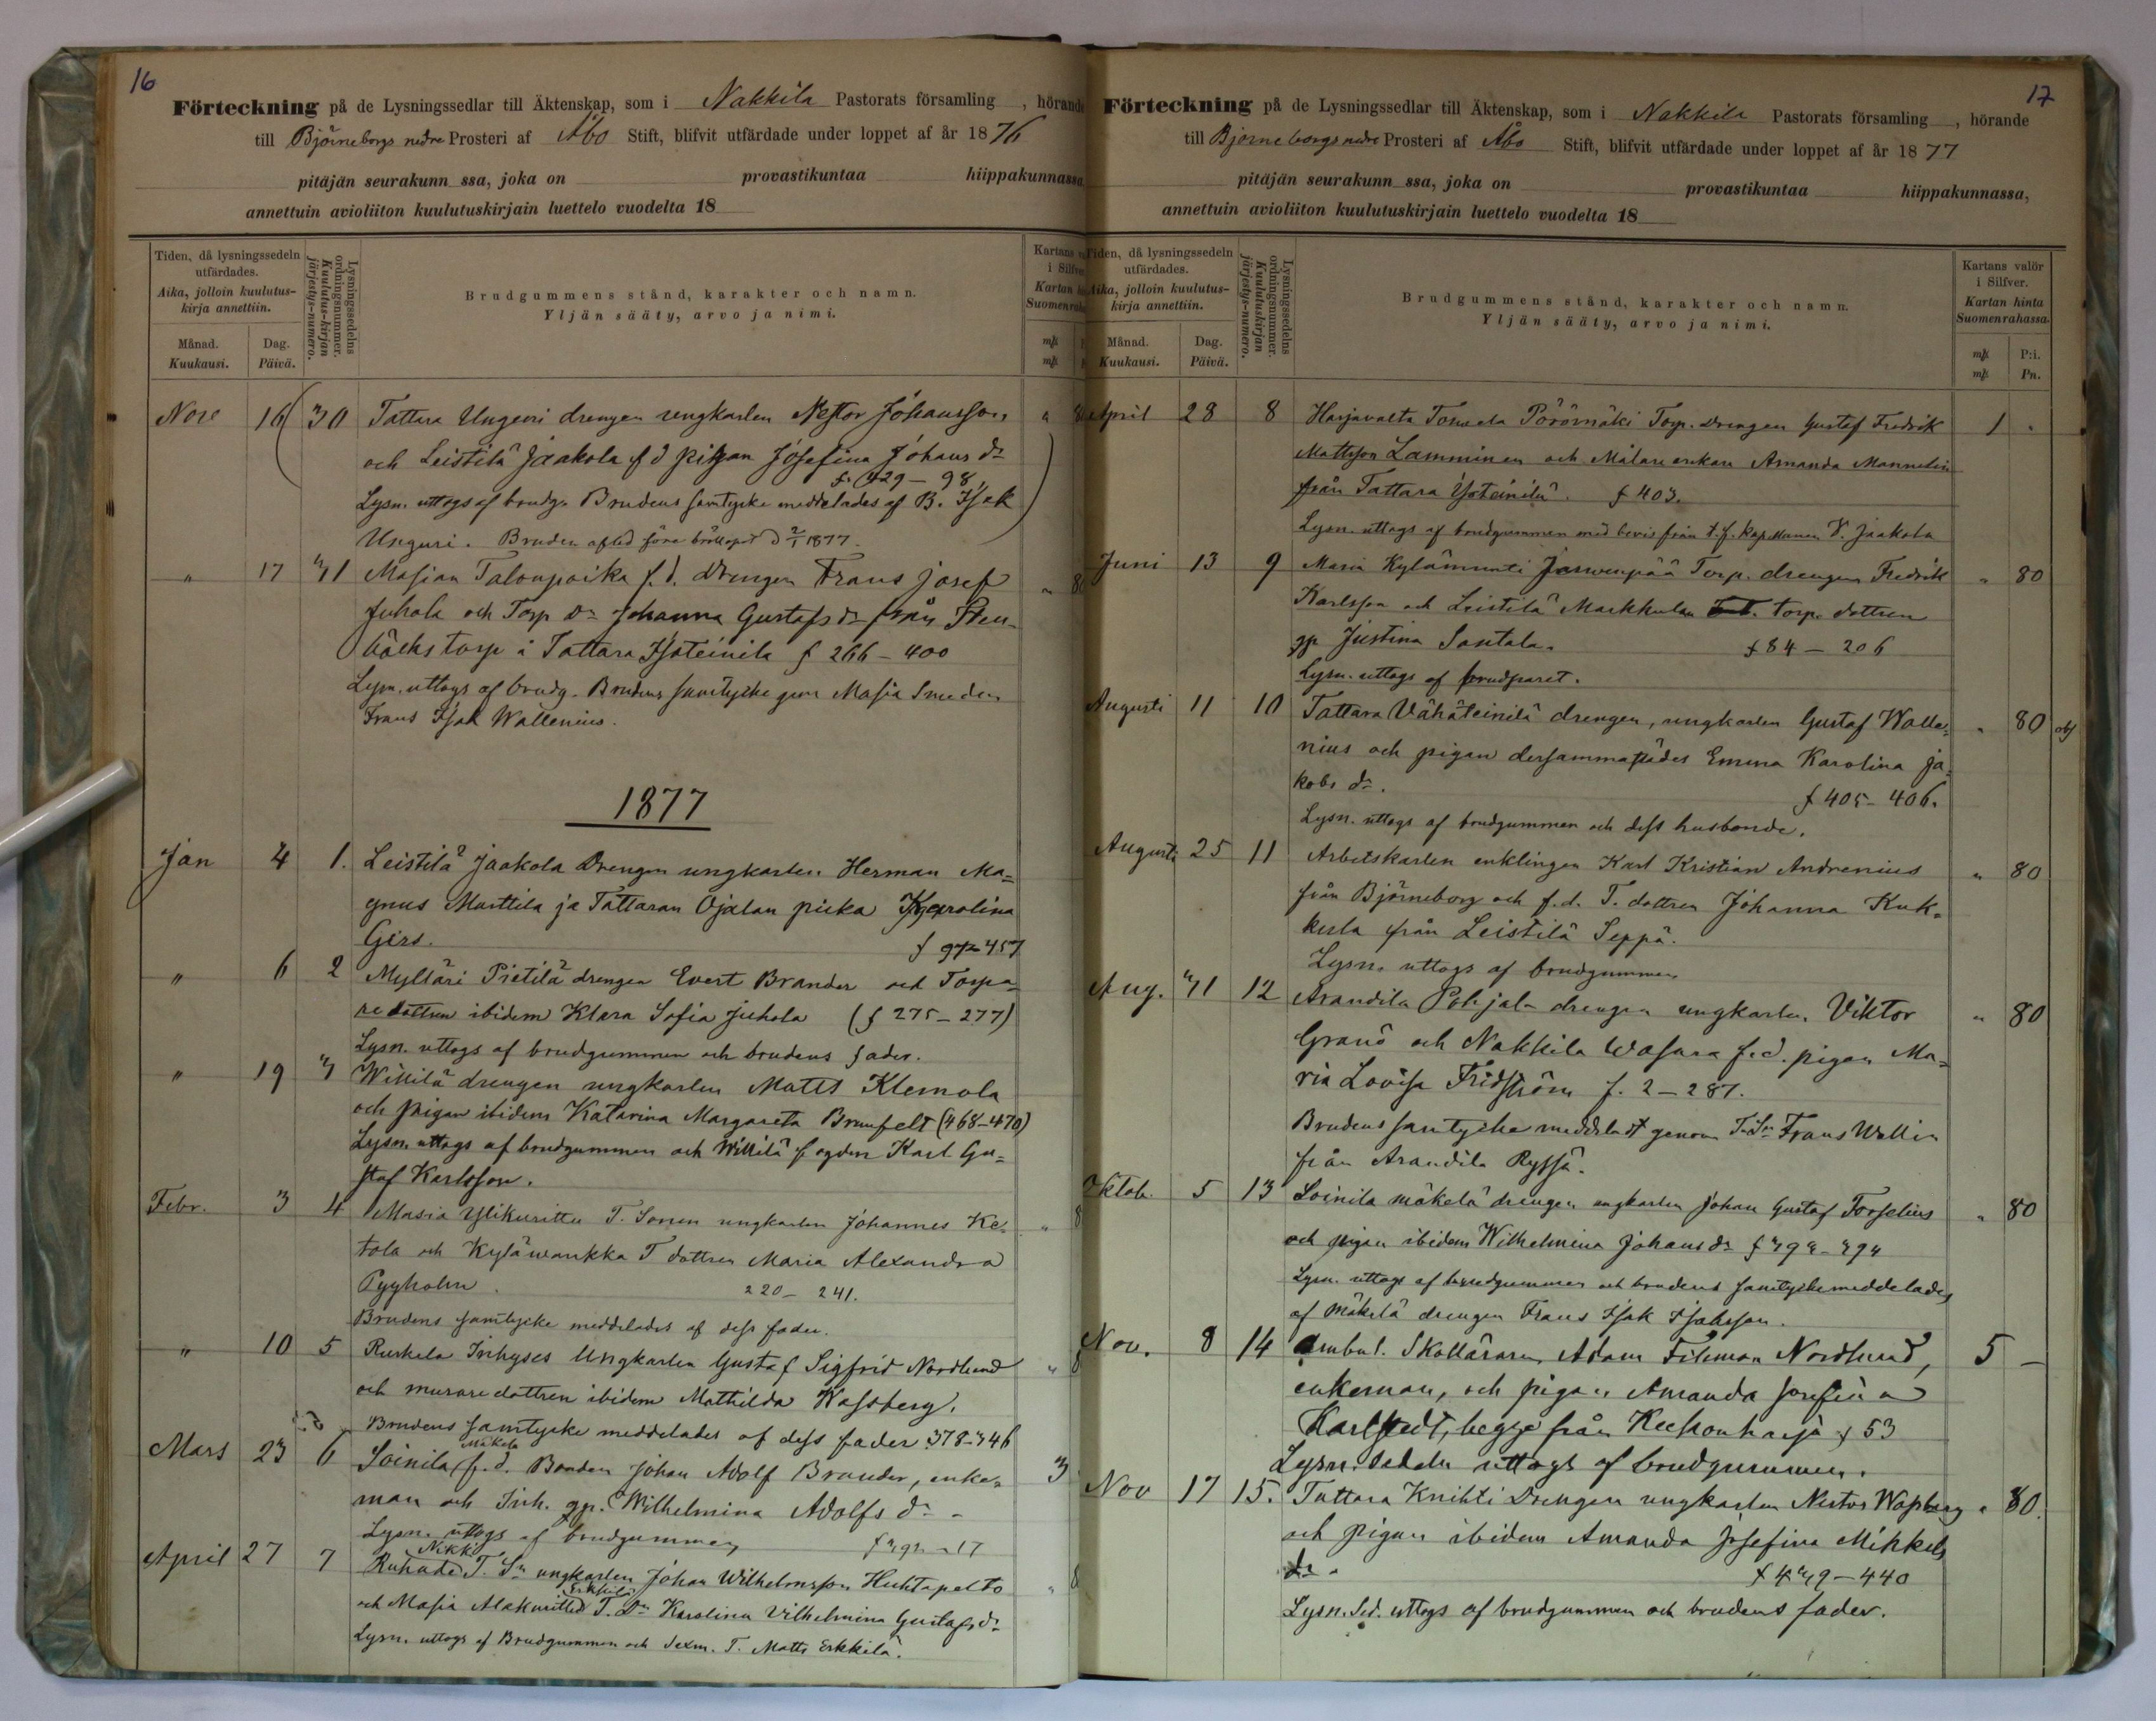 16
Förteckning på de Lysningssedlar till Äktenskap, som i Nakkila Pastorats församling , hörande
till Björneborgs nedre Prosteri af Åbo Stift, blifvit utfärdade under loppet af år 1876
pitäjän seurakunn ssa, joka on provastikuntaa hiippakunnassa
annettuin avioliiton kuulutuskirjain luettelo vuodelta 18
Tiden, då lysningssedeln utfärdades.
Aika, jolloin kuulutus-kirja annettiin.
Månad. Kuukausi.
Dag. Päivä.
Lysningssedelns ordningsnummer.
Kuulutus-kirjan järjestys-numero.
Brudgummens stånd, karakter och namn.
Yljän sääty, arvo ja nimi.
Kartans
i Silfver
Kartan
Suomenraha
mk
mk
Nov 16 30 Tattara Unguri drengen ungkarlen Nestor Johansson
och Leistilä Jaakola f d pigan Josefina Johans dr
f. 429 - 98
Lysn. uttogs af brudg. Brudens samtycke meddelades af B. Isak
Unguri. Bruden afled före bröllopet d 2/1 1877.
" 17 31 Masian Talonpoika f. d. drengen Frans Josef
Juhola och Torp dr Johanna Gustafs dr från Sten-
backs torp i Tattara Isoteinilä f 266 - 400
Lysn. uttogs af brudg. Brudens samtycke gnm Masia Smeden
Frans Isak Wallenius.
1877
Jan 4 1. Leistilä Jaakola Drengen ungkarlen Herman Ma=
gnus Marttila ja Tattaran Ojalan piika Karolina
Gers. f 97-457
" 6 2 Mylläri Pietilä drengen Evert Brander och Torpa-
re dottren ibidem Klara Sofia Juhola (f 275-277)
Lysn. uttogs af brudgummen och brudens fader.
" 19 3 Willilä drengen ungkarlen Matts Klemola
och pigan ibidem Katarina Margareta Brunfelt (468-470)
Lysn. uttogs af brudgummen och Willilä fogden Karl Gu=
staf Karlsson.
Febr. 3 4 Masia Ylikurittu T. Sonen ungkarlen Johannes Ke-
tola och Kylävankka T dottren Maria Alexandra
Pyyholm. 220 - 241.
Brudens samtycke meddelades af dess fader.
" 10 5 Ruskela Inhyses Ungkarlen Gustaf Sigfrid Nordlund
och murare dottren ibidem Mathilda Kassberg.
Brudens samtycke meddelades af dess fader 378-346
Mäkelä
Mars 23 6 Soinila f. d. Bonden Johan Adolf Brander, enke- 3
man och Inh. gp. Wilhelmina Adolfs dr -
Lysn. uttogs af brudgummen
April 27 7 T. Sn ungkarlen Johan Wilhelmsson Huhtapelto
Erkkilä
och Masia Alakurittu T. Dr Karolina Vilhelmina Gustafs dr
Lysn. uttogs af Brudgummen och Sexm. T. Matts Erkkilä.
17
Förteckning på de Lysningssedlar till Äktenskap, som i Nakkila Pastorats församling , hörande
till Björneborgs nedre Prosteri af Åbo Stift, blifvit utfärdade under loppet af år 1877
pitäjän seurakunn ssa, joka on provastikuntaa hiippakunnassa,
annettuin avioliiton kuulutuskirjain luettelo vuodelta 18
Tiden, då lysningssedeln utfärdades.
Aika, jolloin kuulutus-kirja annettiin.
Månad. Kuukausi.
Dag. Päivä.
Lysningssedelns ordningsnummer.
Kuulutuskirjan järjestys-numero.
Brudgummens stånd, karakter och namn.
Yljän sääty, arvo ja nimi.
Kartans valör i Silfver.
Kartan hinta Suomenrahassa.
mk P:i.
mk Pn.
April 28 8 Harjavalta Torp. drengen Gustaf Fredrik 1 "
Mattsson Lamminen och Målare enkan Amanda Mannelin
från Tattara Isoteinilä. f 403.
Lysn. uttogs af brudgummen med bevis från t. f. Kapellanen K. Jaakola
Juni 13 9 Masia Kylänmuti Järvenpää Torp. drengen Fredrik " 80
Karlsson och Leistilä Markkulan torp. dottren
gp Justina Santala. f 84 - 206
Lysn. uttogs af brudparet.
Augusti 11 10 Tattara Vähäteinilä drengen, ungkarlen Gustaf Walle= " 80
nius och pigan dersammastädes Emma Karolina Ja-
kobs dr. f 405-406.
Lysn. uttogs af brudgummen och dess husbonde.
Augusti 25 11 Arbetskarlen enklingen Karl Kristian Andrenius " 80
från Björneborg och f. d. T. dottren Johanna Kuk-
kula från Leistilä Seppä.
Lysn. uttogs af brudgummen
Aug. 31 12 Arandila Pohjala drengen ungkarlen Viktor " 80
Granö och Nakkila Wasara f. d. pigan Ma-
ria Lovisa Fridström f. 2-287.
Brudens samtycke meddeladt genom T. Sn Frans Wallin
från Arandila Ryssä.
Oktob. 5 13 Soinila Mäkelä drengen ungkarlen Johan Gustaf Forselius " 80
och pigan ibidem Wilhelmina Johans dr f 393-394
Lysn. uttogs af brudgummen och brudens samtycke meddelades
af Mäkelä drengen Frans Isak Isaksson.
Nov. 8 14 Ambul. Skolläraren Adam Fihman Nordlund, 5 -
enkeman, och pigan Amanda Josefina
Karlstedt, begge från Keskonharja f 53
Lysn. sedeln uttogs af brudgummen.
Nov 17 15. Tattara Knihti Drengen ungkarlen Nestor Wapberg " 80.
och pigan ibidem Amanda Josefina Mikkels
dr. f 439-440
Lysn. Sed. uttogs af brudgummen och brudens fader.